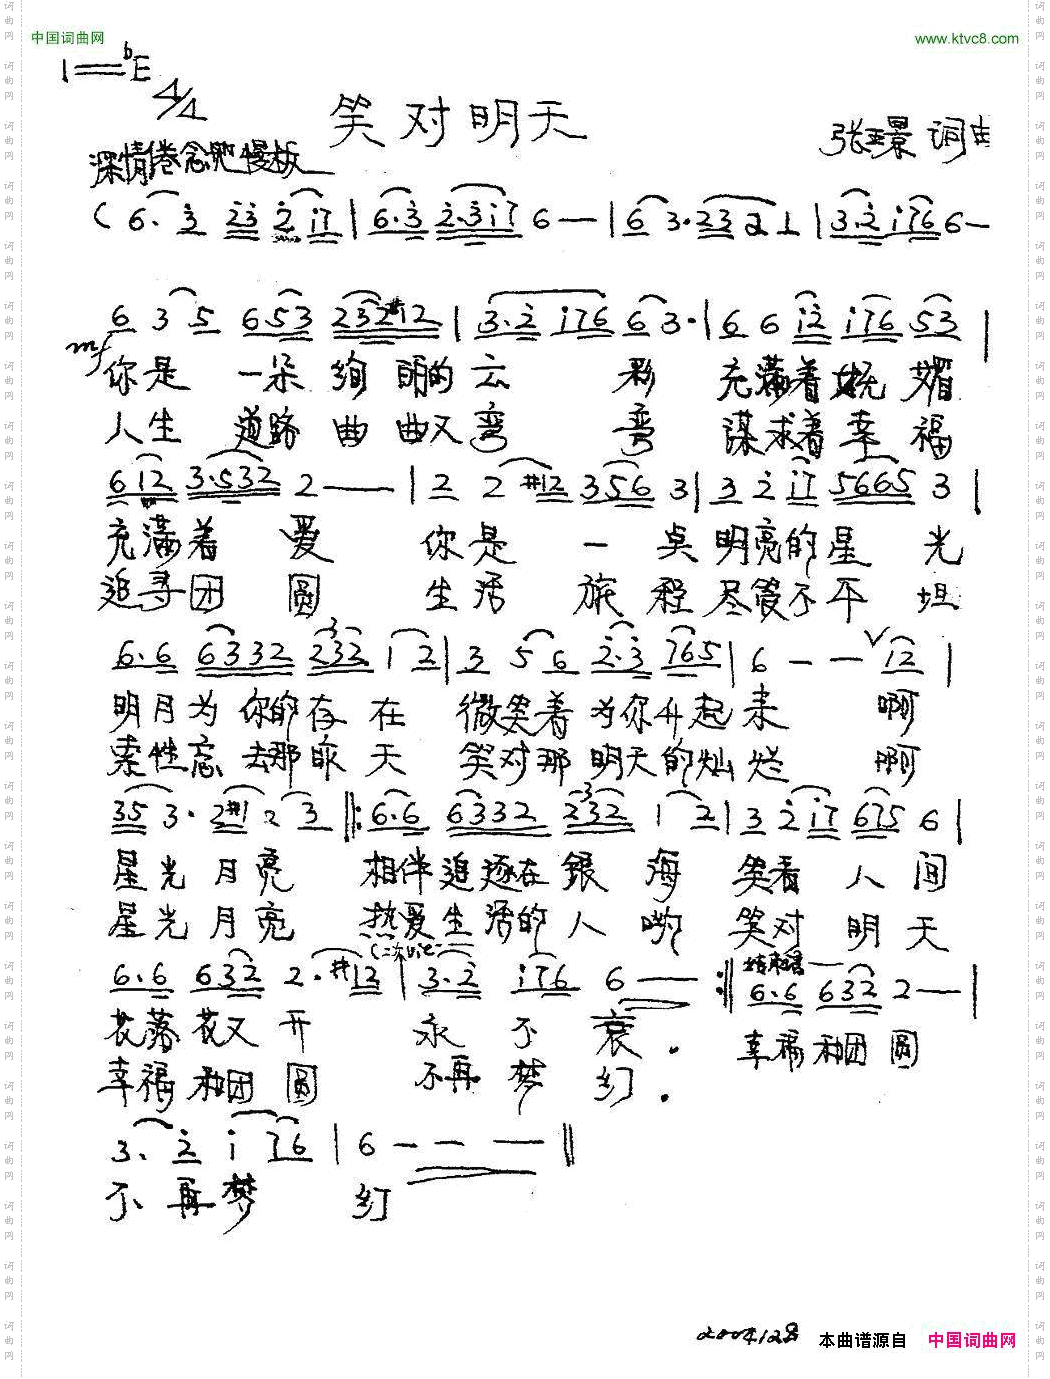 中国词曲网
www.ktvc8.com
1=bE
4/4
笑对明天
词曲
(6.3 23 2 i7|6.3 2.3i7 6—|6 3.23 2 1|3.2 i76 6—
6 3 5 6 53 232#12|3.2 i76 6 3.|6 6 i2 i76 53|
mf
你是 一朵绚丽的云 彩 充满着妩媚
人生 道路曲曲又弯 弯 谋求着幸福
6i2 3.532 2——|2 2 #12 356 3|3 2 i7 5665 3|
充满着 爱 你是 一 点明亮的星 光
追寻团 圆 生活 旅 程尽管不平 坦
6.6 6332 232 1 2|3 5 6 2.3 765|6 — — i2|
明月为你的存在 微笑着为你升起来 啊
索性忘去那昨天 笑对那明天的灿烂 啊
35 3.2#1 2 3 ‖:6.6 6332 232 1 2|3 2 i7 675 6|
星光月亮 相伴追逐在银海 笑看人间
星光月亮 热爱生活的人哟 笑对明天
6.6 632 2.#12|3.2 i76 6 — :‖ 6.6 632 2—|
结束句
花落花又开 永不衰.
幸福和团圆
幸福和团圆 不再梦幻.
3. 2 i 76|6 — — —‖
不再梦 幻
本曲谱源自 中国词曲网